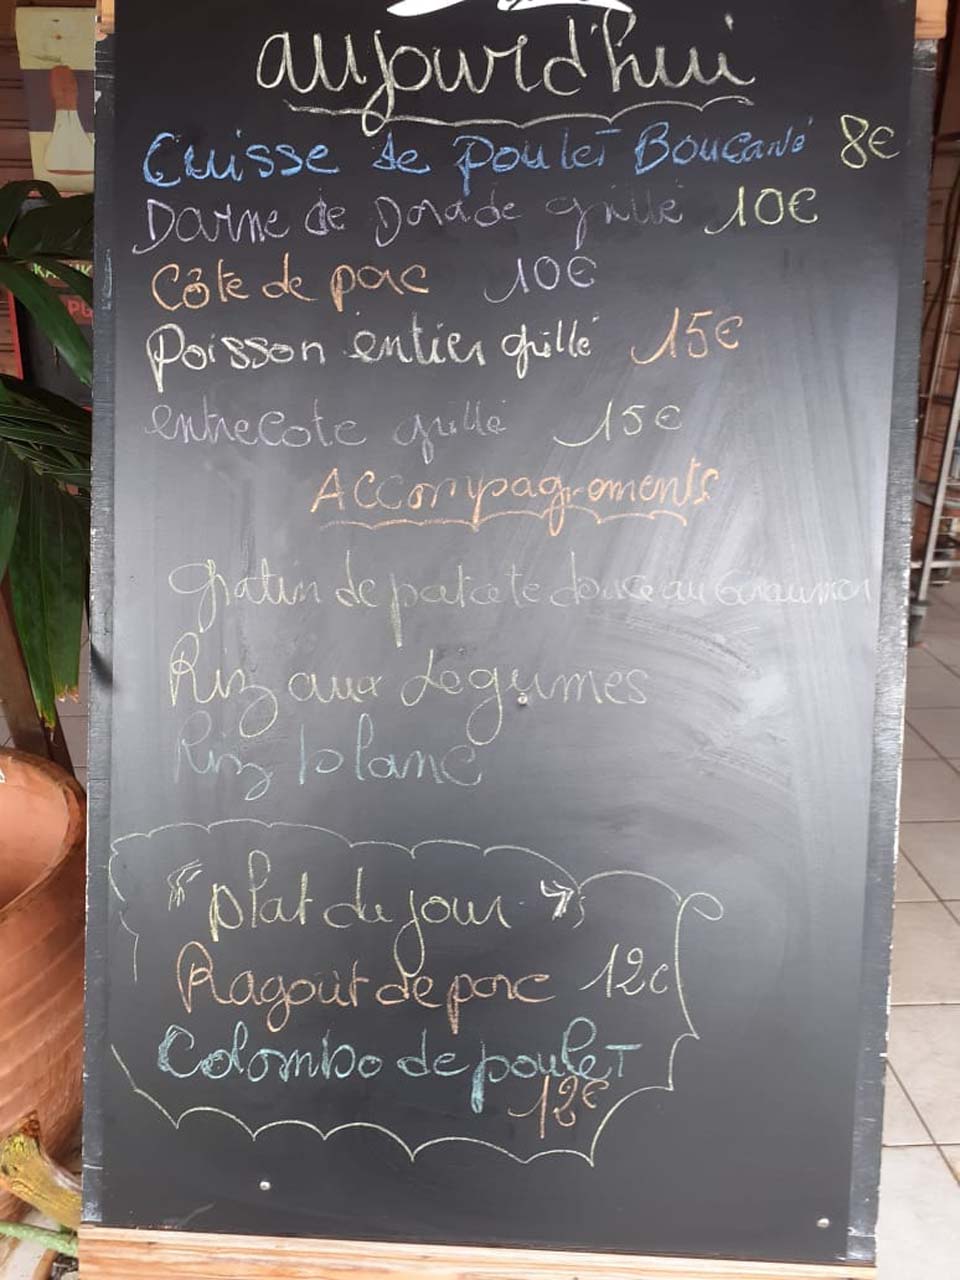 aujourd'hui
Cuisse de poulet Boucané 8€
Darne de Dorade grillé 10€
Côte de porc 10€
Poisson entier grillé 15€
entrecote grillé 15€
Accompagnements
gratin de patate douce au Giraumon
Riz aux Légumes
Riz blanc
"plat du jour"
Ragoût de porc 12€
Colombo de poulet
12€